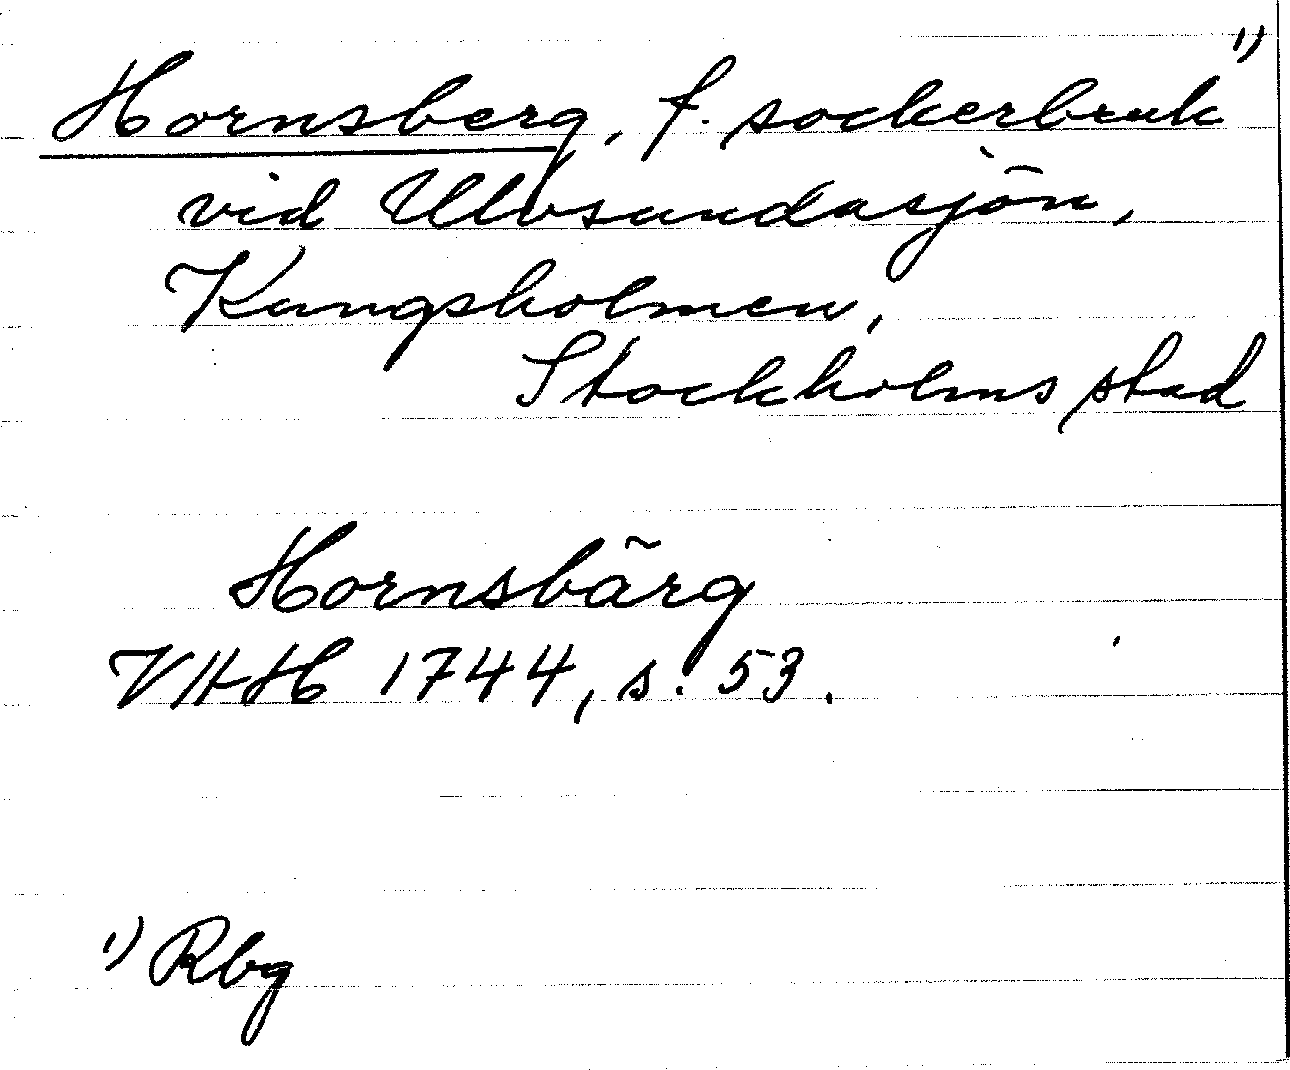 Hornsberg, f. sockerbruk 1)
vid Ulvsundasjön,
Kungsholmen,
Stockholms stad
Hornsbärg
VHH 1744, s. 53.
1) Rbg